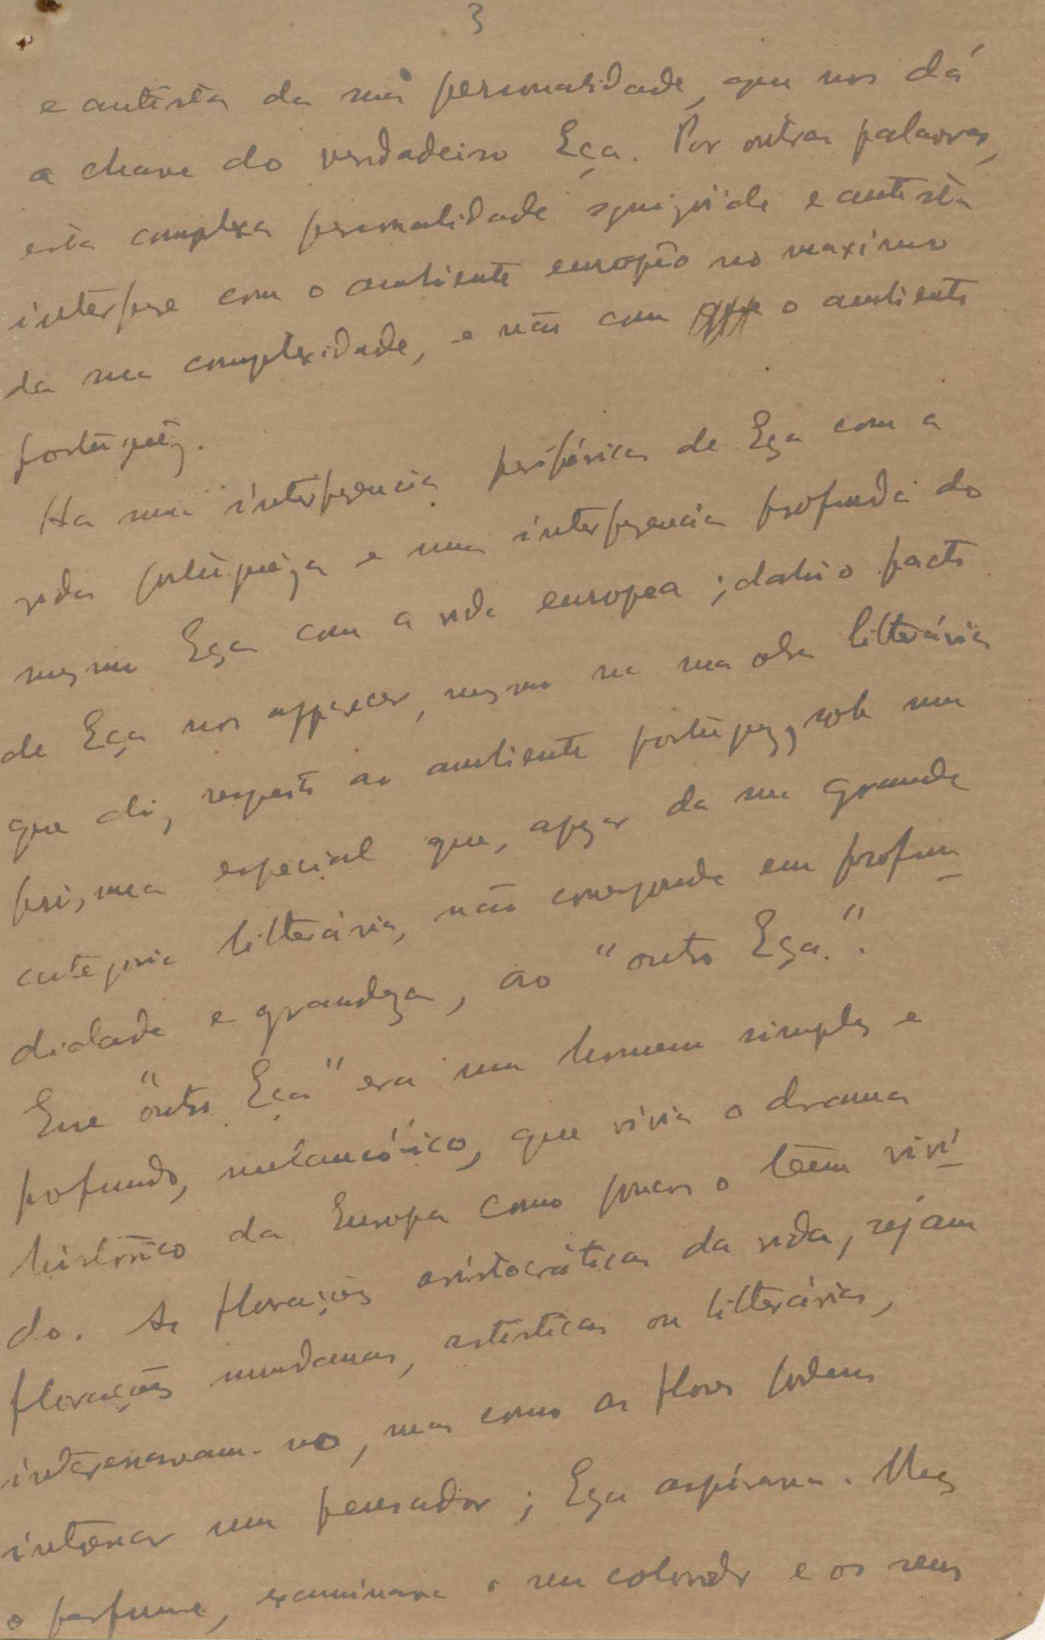 3
e autista da sua personalidade, que nos dá
a chave do verdadeiro Eça. Por outras palavras,
esta complexa personalidade e autista
interfere com o ambiente europeo no maximo
da sua complexidade, e não com o ambiente
português.
Ha uma interferencia periférica de Eça com a
vida portuguêza e uma interferencia profunda do
mesmo Eça com a vida europea; dahi o facto
de Eça nos apparecer, mesmo na sua obra litterária
que diz respeito ao ambiente portuguez, sob um
prisma especial que, apezar da sua grande
categoria litterária, não corresponde em profun-
didade e grandeza, ao "outro Eça".
Esse "outro Eça" era um homem simples e
profundo, melancólico, que vivia o drama
histórico da Europa como poucos o teem vivi-
do. As florações aristocráticas da vida, sejam
florações mundanas, artisticas ou litterárias,
interessavam-no, mas como as flores podem
interessar um pensador; Eça aspirava-lhes
o perfume, examinava o seu colorido e os seus